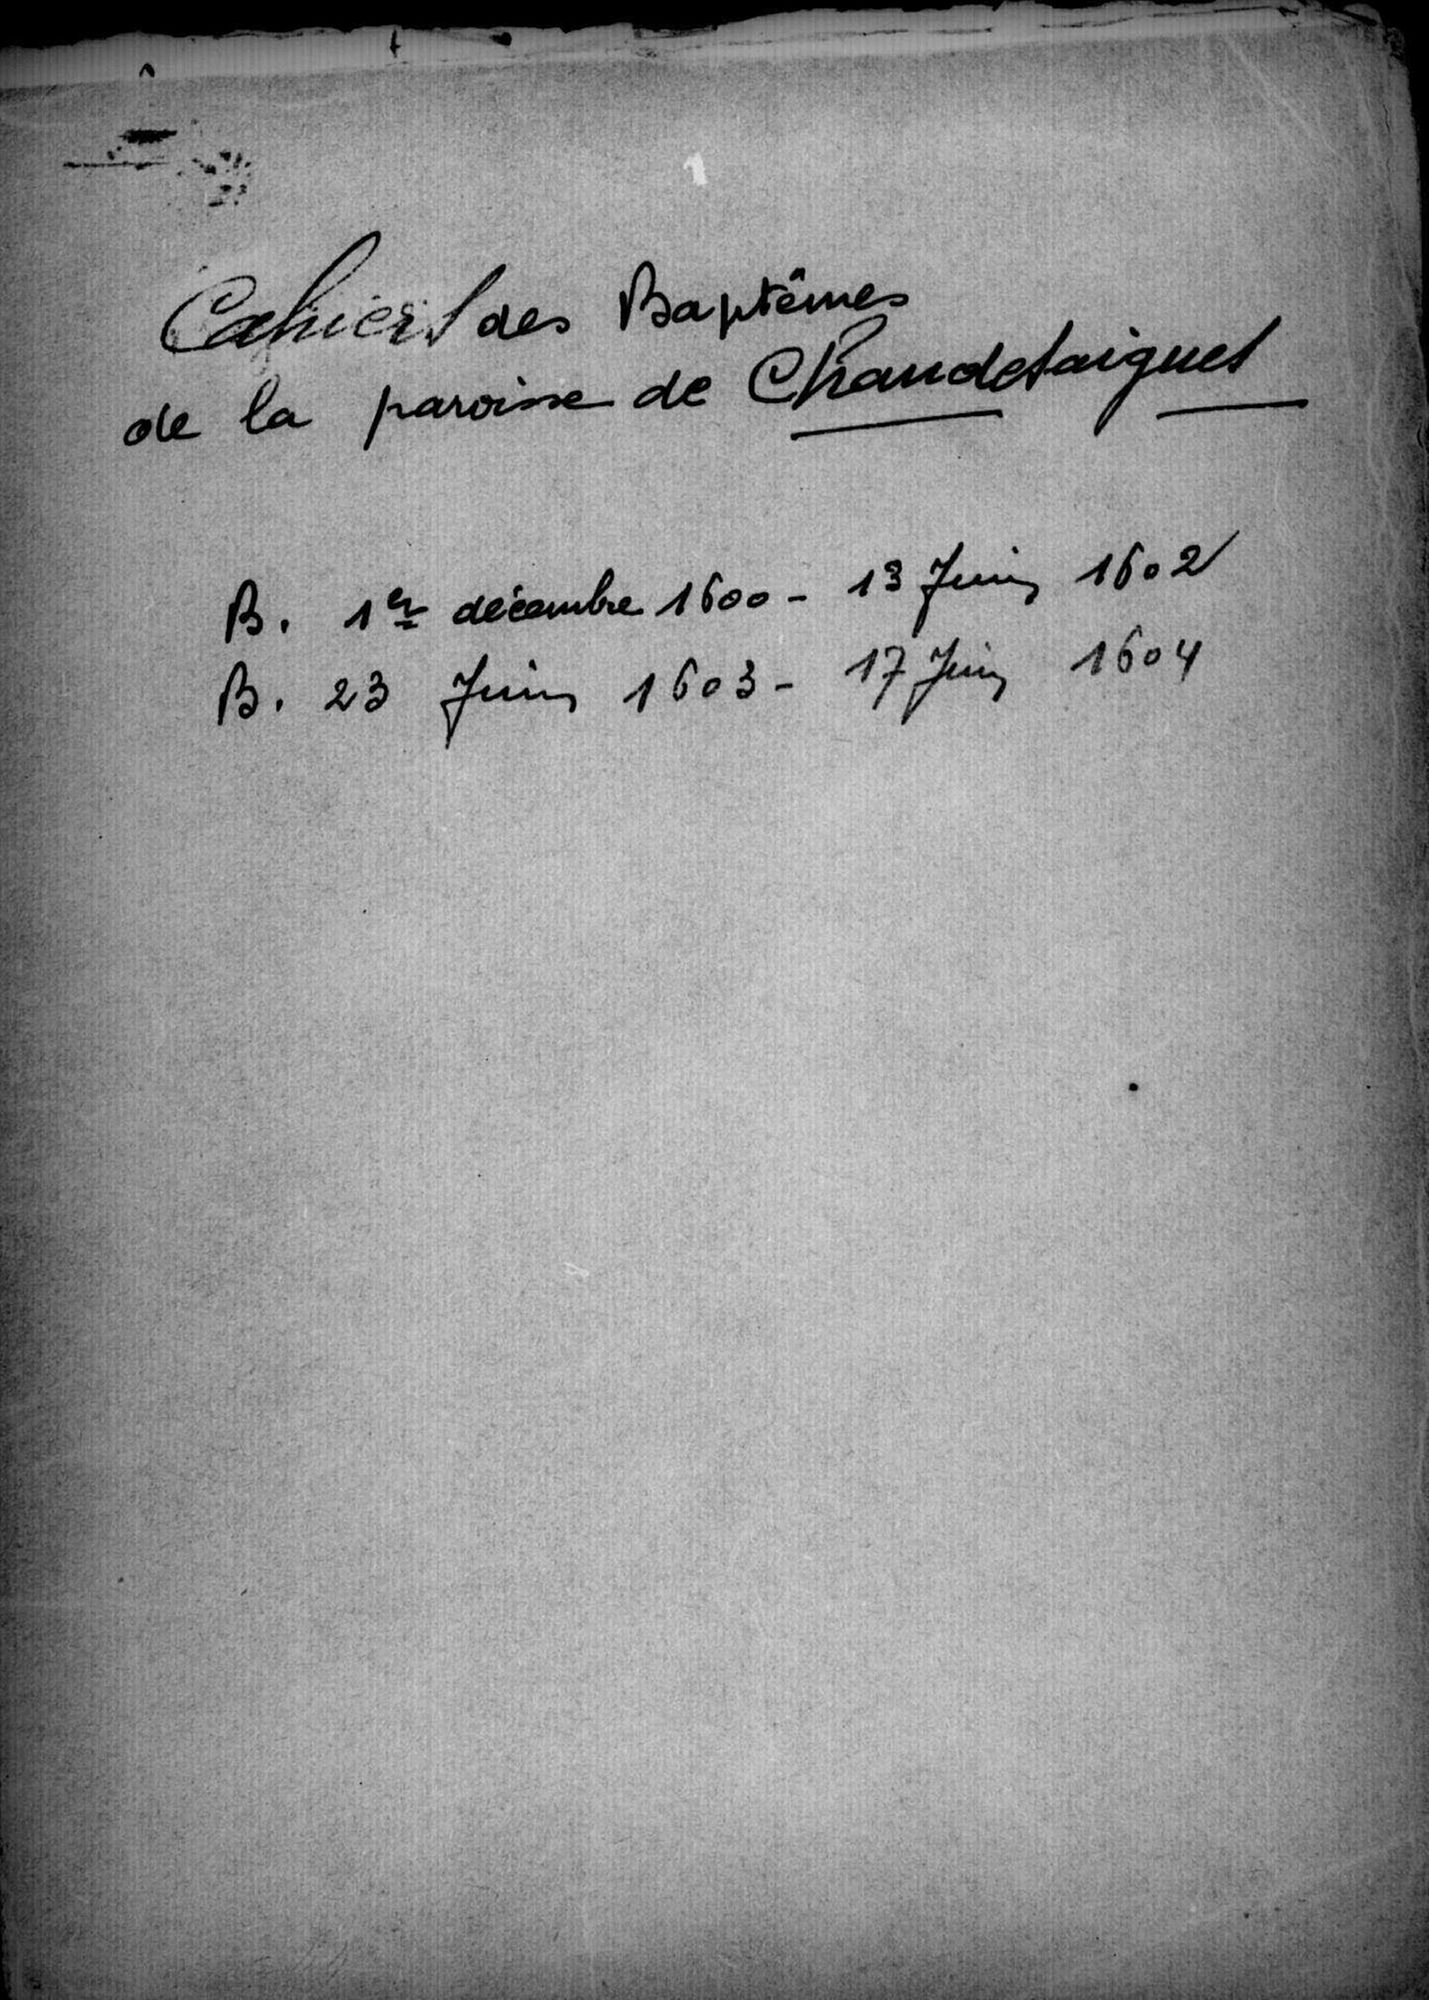 1
Cahiers des Baptêmes
de la paroisse de Chaudesaigues
B. 1er décembre 1600 - 13 Juin 1602
B. 23 Juin 1603 - 17 Juin 1604